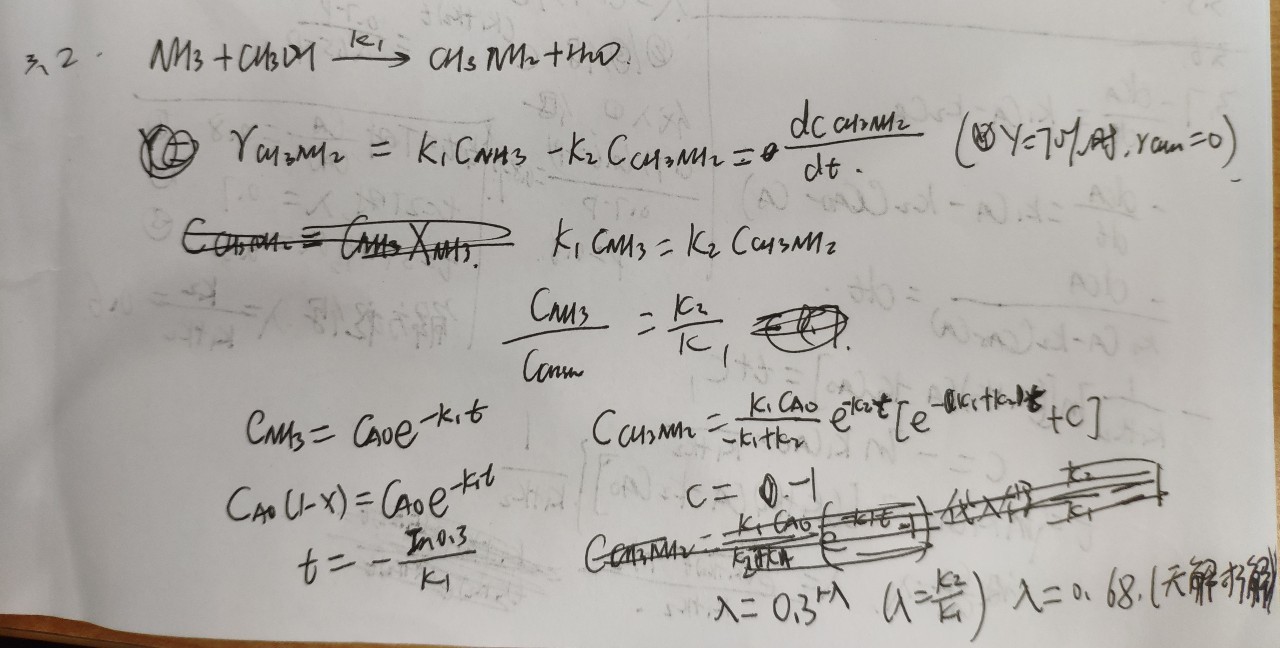 3.2. NH3 + CH3OH —K1→ CH3NH2 + H2O.
rCH3NH2 = K1CNH3 - K2CCH3NH2 = dcCH3NH2/dt. (Y=70%时, rCH3NH2=0)
K1CNH3 = K2CCH3NH2
CNH3/CCH3NH2 = K2/K1
CNH3 = CA0e^-K1t CCH3NH2 = K1CA0/(-K1+K2) e^-K2t [e^-(K1+K2)t + C]
CA0(1-X) = CA0e^-K1t C = -1
t = - In0.3/K1
λ = 0.3^1-λ (λ = K2/K1) λ = 0.68.